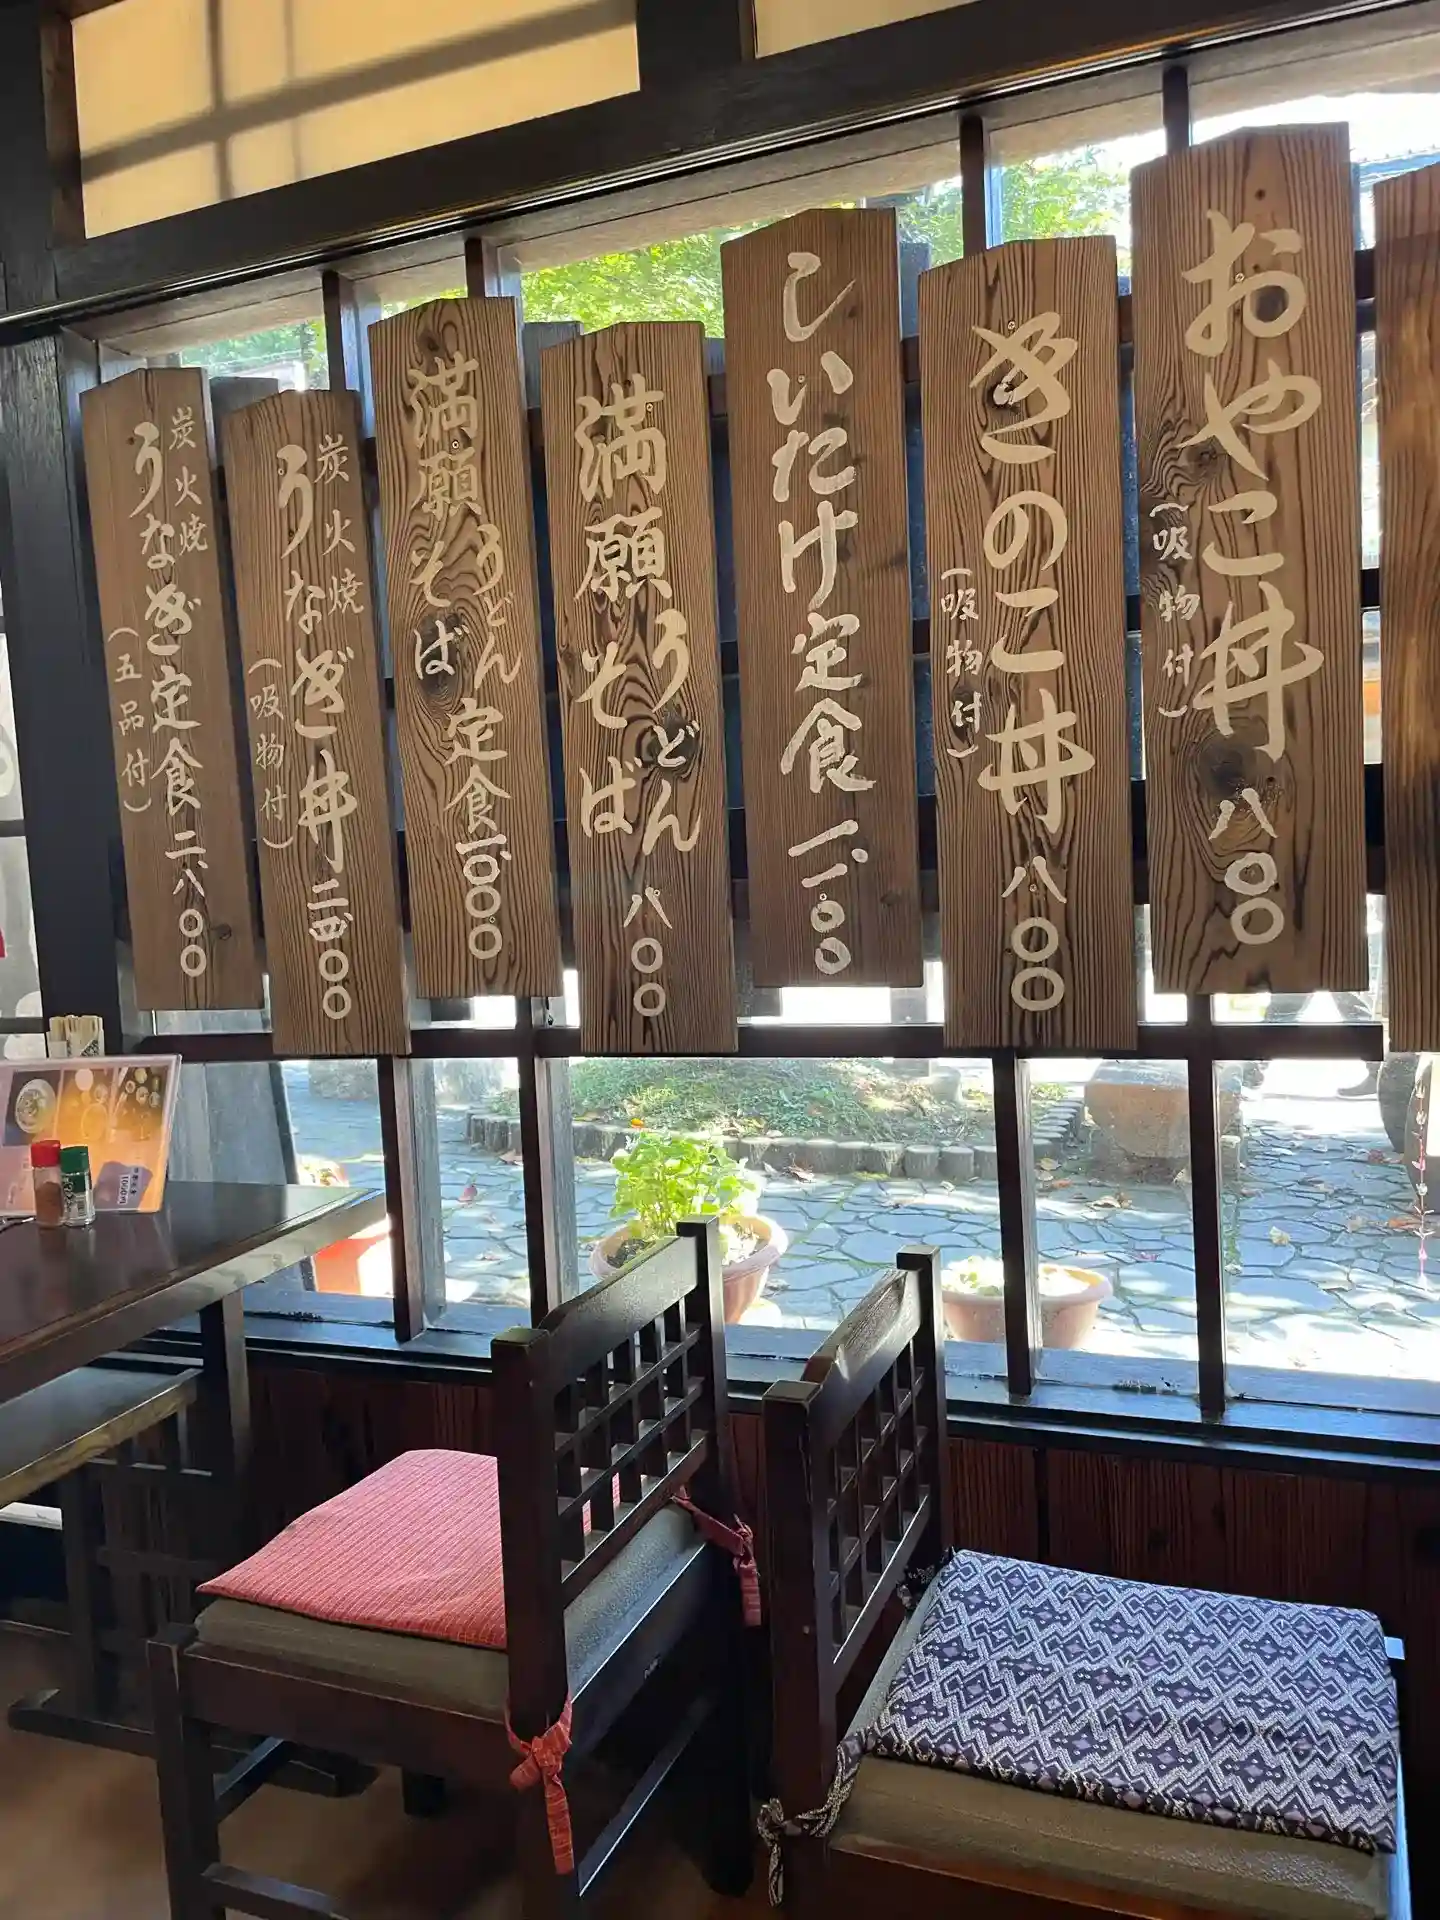 おやこ丼 八〇〇
(吸物付)
きのこ丼 八〇〇
(吸物付)
しいたけ定食 一、一〇〇
満願うどん
そば 八〇〇
満願うどん
そば定食 一、〇〇〇
炭火焼
うなぎ丼 二、四〇〇
(吸物付)
炭火焼
うなぎ定食 二、八〇〇
(五品付)